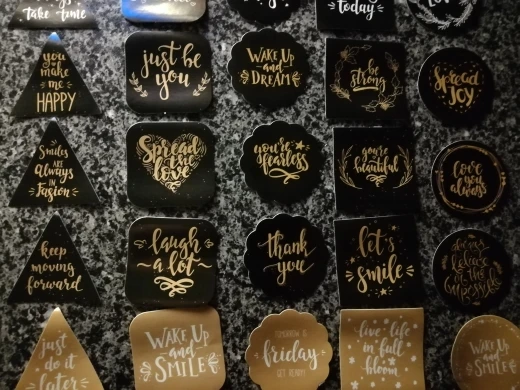 take time
today
you
make
me
HAPPY
just be
you
WAKE UP
and
DREAM
be
strong
Spread
JOY
Smiles
ARE
Always
IN
Fasion
Spread
the
love
you're
fearless
you're
beautiful
love
you
always
keep
moving
forward
laugh
a lot
thank
you
let's
smile
believe
in the
impossible
just
do it
later
WAKE UP
and
SMILE
TOMORROW IS
friday
GET READY!
live life
in full
bloom
WAKE UP
and
SMILE